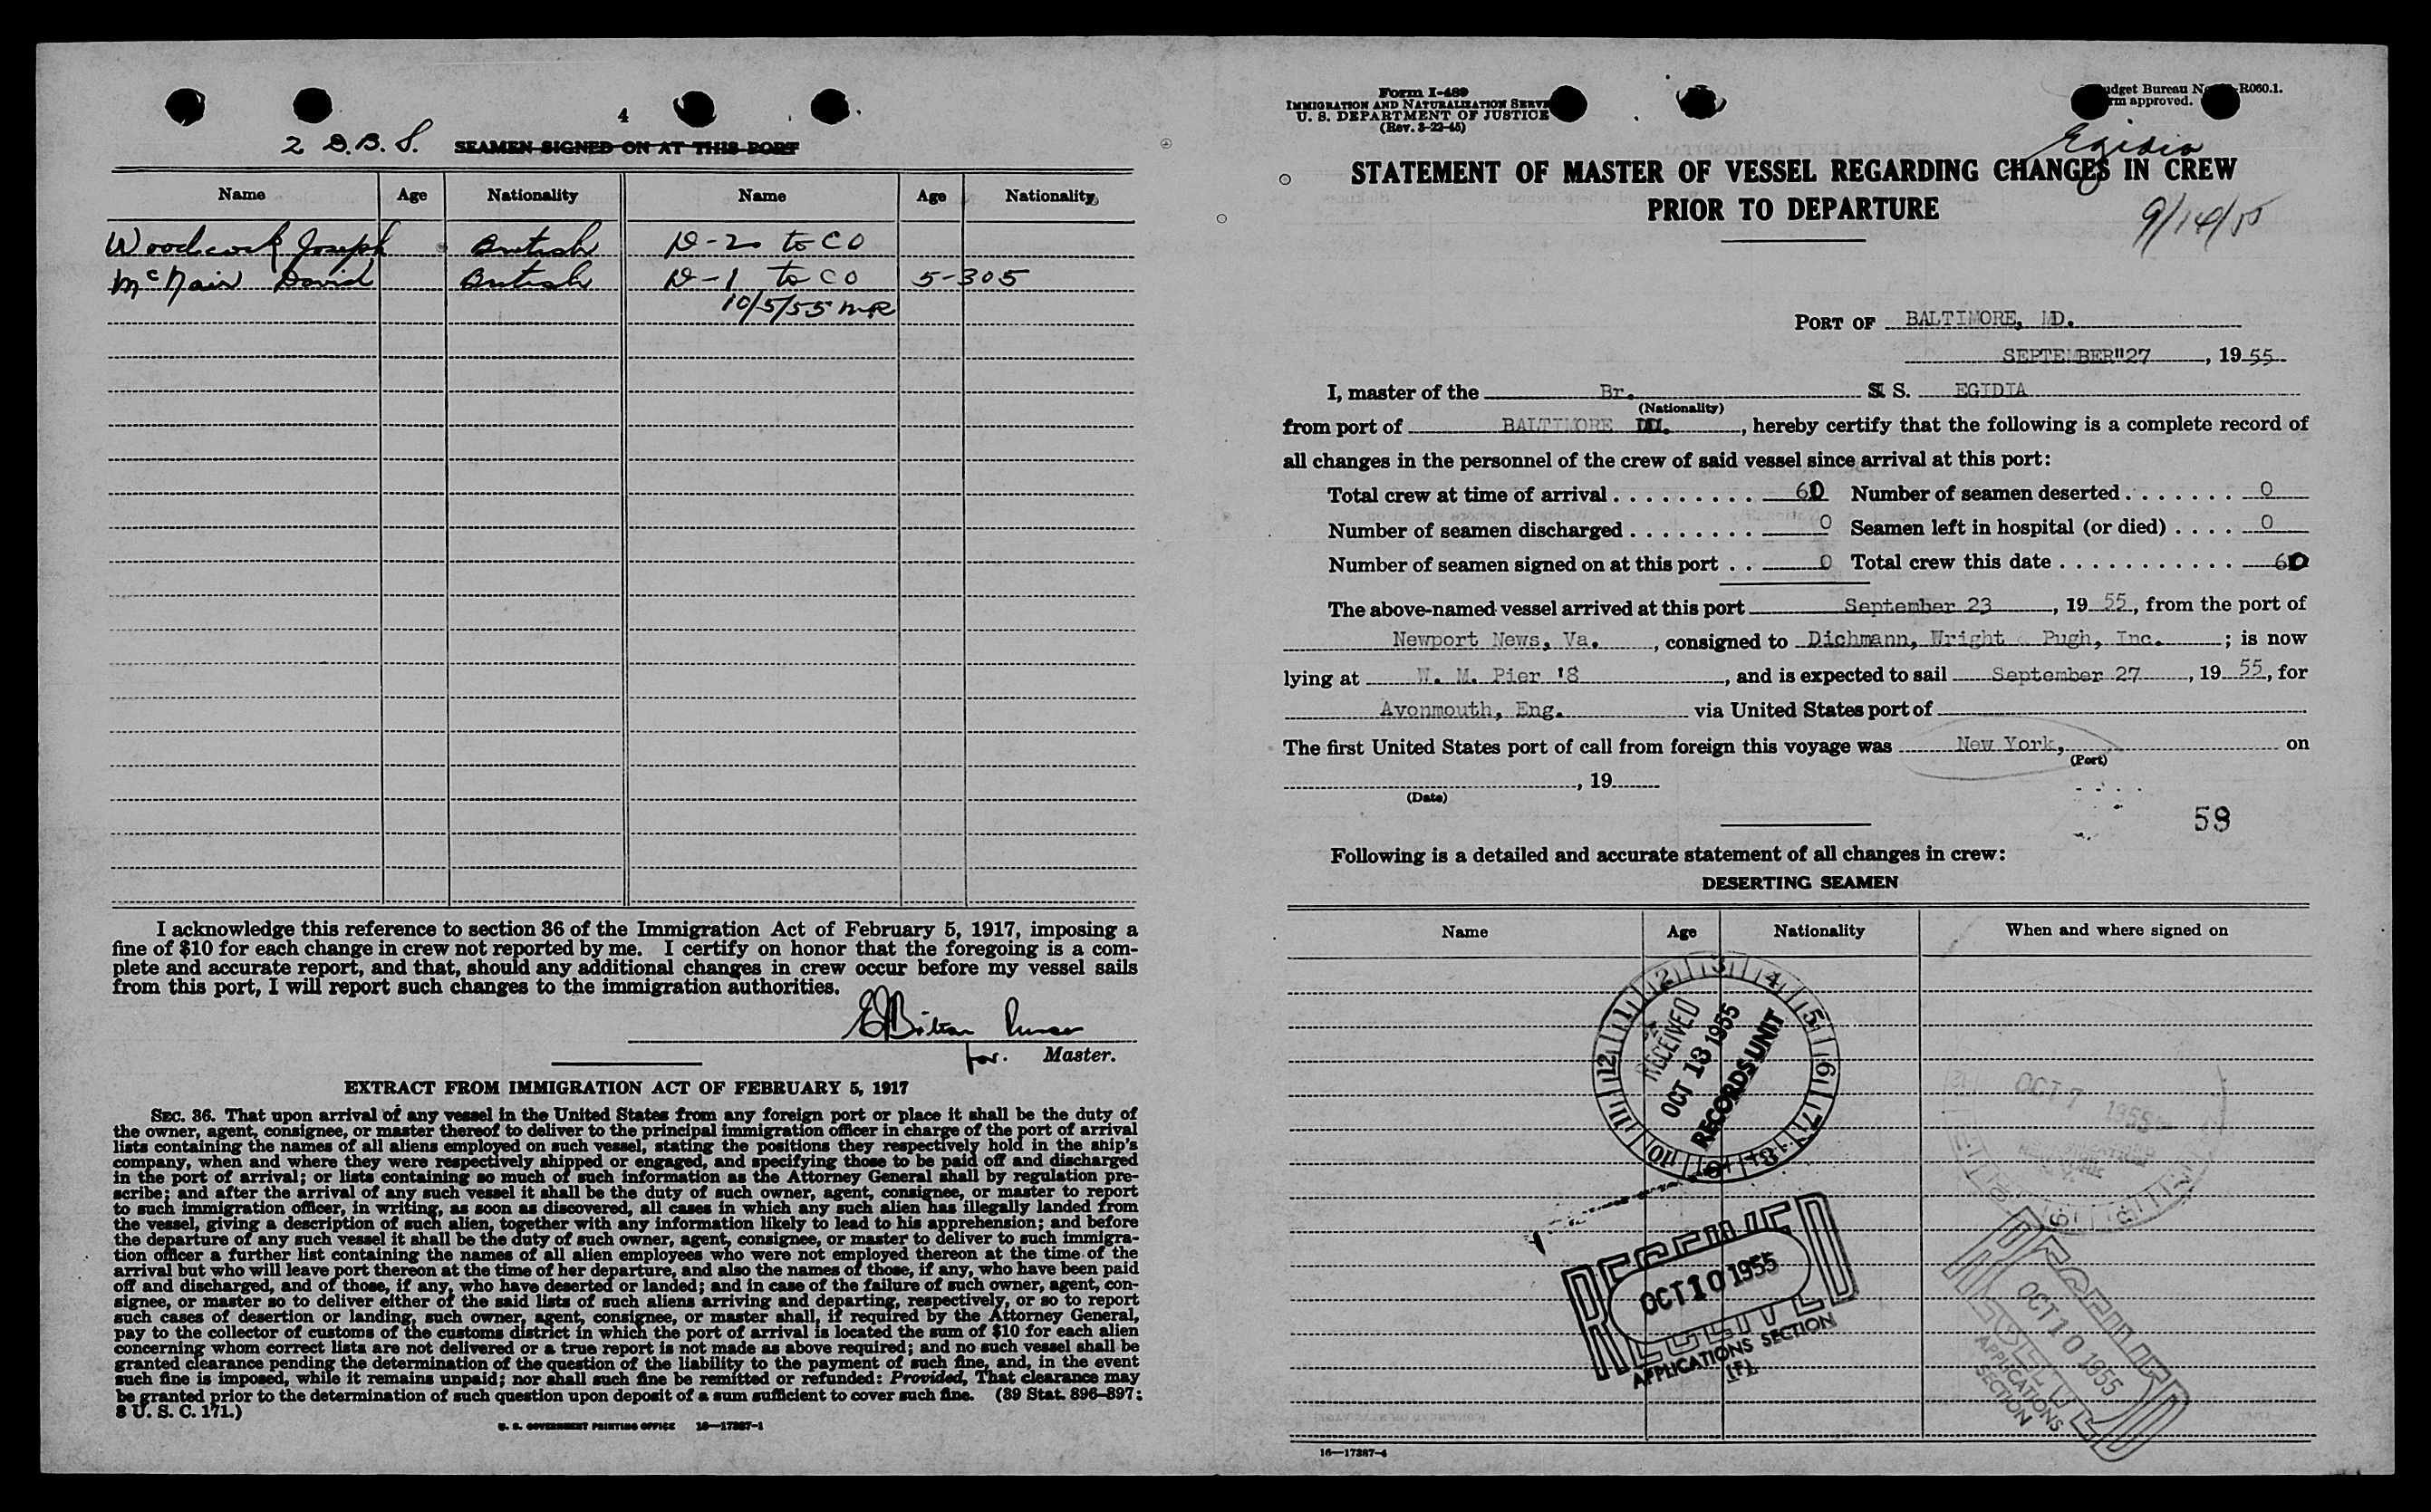 4
2 D.B.S. SEAMEN SIGNED ON AT THIS PORT
Name Age Nationality Name Age Nationality
Woodcock Joseph British D-2 to CO
McNair David British D-1 to CO 5-305
10/5/55 MR
I acknowledge this reference to section 36 of the Immigration Act of February 5, 1917, imposing a
fine of $10 for each change in crew not reported by me. I certify on honor that the foregoing is a com-
plete and accurate report, and that, should any additional changes in crew occur before my vessel sails
from this port, I will report such changes to the immigration authorities.
E Bilton Purser
for. Master.
EXTRACT FROM IMMIGRATION ACT OF FEBRUARY 5, 1917
SEC. 36. That upon arrival of any vessel in the United States from any foreign port or place it shall be the duty of
the owner, agent, consignee, or master thereof to deliver to the principal immigration officer in charge of the port of arrival
lists containing the names of all aliens employed on such vessel, stating the positions they respectively hold in the ship's
company, when and where they were respectively shipped or engaged, and specifying those to be paid off and discharged
in the port of arrival; or lists containing so much of such information as the Attorney General shall by regulation pre-
scribe; and after the arrival of any such vessel it shall be the duty of such owner, agent, consignee, or master to report
to such immigration officer, in writing, as soon as discovered, all cases in which any such alien has illegally landed from
the vessel, giving a description of such alien, together with any information likely to lead to his apprehension; and before
the departure of any such vessel it shall be the duty of such owner, agent, consignee, or master to deliver to such immigra-
tion officer a further list containing the names of all alien employees who were not employed thereon at the time of the
arrival but who will leave port thereon at the time of her departure, and also the names of those, if any, who have been paid
off and discharged, and of those, if any, who have deserted or landed; and in case of the failure of such owner, agent, con-
signee, or master so to deliver either of the said lists of such aliens arriving and departing, respectively, or so to report
such cases of desertion or landing, such owner, agent, consignee, or master shall, if required by the Attorney General,
pay to the collector of customs of the customs district in which the port of arrival is located the sum of $10 for each alien
concerning whom correct lists are not delivered or a true report is not made as above required; and no such vessel shall be
granted clearance pending the determination of the question of the liability to the payment of such fine, and, in the event
such fine is imposed, while it remains unpaid; nor shall such fine be remitted or refunded: Provided, That clearance may
be granted prior to the determination of such question upon deposit of a sum sufficient to cover such fine. (39 Stat. 896–897;
8 U. S. C. 171.)
U. S. GOVERNMENT PRINTING OFFICE 16—17387-1
Form I-489
IMMIGRATION AND NATURALIZATION SERV
U. S. DEPARTMENT OF JUSTICE
(Rev. 3-22-45)
udget Bureau No R060.1.
rm approved.
Egidia
STATEMENT OF MASTER OF VESSEL REGARDING CHANGES IN CREW
PRIOR TO DEPARTURE
9/14/55
PORT OF BALTIMORE, MD.
SEPTEMBER"27, 1955
I, master of the Br. S. S. EGIDIA
(Nationality)
from port of BALTIMORE, hereby certify that the following is a complete record of
all changes in the personnel of the crew of said vessel since arrival at this port:
Total crew at time of arrival 60 Number of seamen deserted 0
Number of seamen discharged 0 Seamen left in hospital (or died) 0
Number of seamen signed on at this port 0 Total crew this date 60
The above-named vessel arrived at this port September 23, 1955, from the port of
Newport News, Va., consigned to Dichmann, Wright Pugh, Inc.; is now
lying at W. M. Pier '8, and is expected to sail September 27, 1955, for
Avonmouth, Eng. via United States port of
The first United States port of call from foreign this voyage was New York, on
(Port)
, 19
(Date)
59
Following is a detailed and accurate statement of all changes in crew:
DESERTING SEAMEN
Name Age Nationality When and where signed on
12 1 2 3 4 5 6 7 8 9 10 11
RECEIVED
OCT 13 1955
RECORDS UNIT
OCT 7 1955
RECEIVED
OCT 10 1955
APPLICATIONS SECTION
(F)
RECEIVED
OCT 10 1955
APPLICATIONS
SECTION
16—17387-4